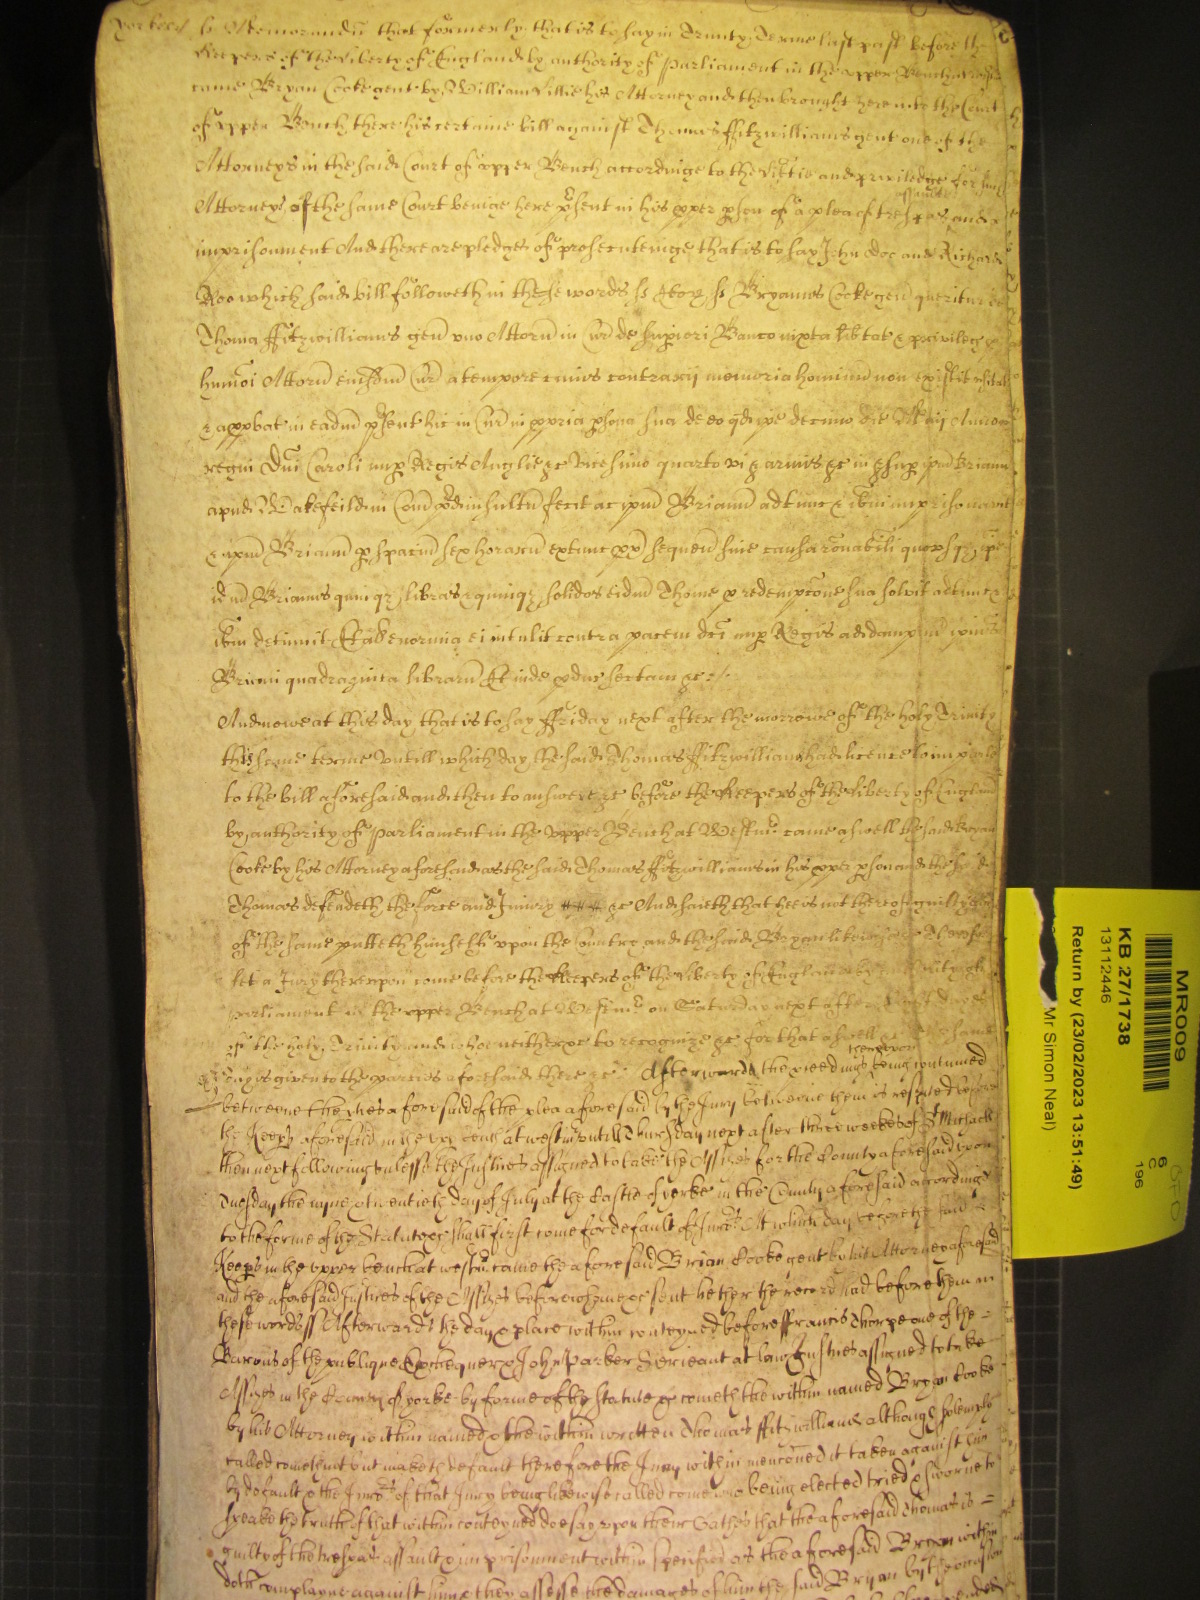 Yorkes ss Memorandu that formerly that is to say in Trinity Terme last past before the
Keepers of the liberty of England by authority of Parliament in the upper Bench at Westm
came Bryan Cooke gent by William Lillie his Attorney and then brought here into the Court
of upper Bench there his certaine bill against Thomas ffitzwilliams gent one of the
Attorneys in the said Court of upper Bench accordinge to the and priviledge for such
assaulte
Attorneys of the same Court beinge here psent in his pper pson of a plea of trespas and
imprisonment And there are pledges of prosecuteinge that is to say John doe and Richard
Roo which said bill followeth in these words ss Ebor ss Bryanus Cooke gen queritur de
Thoma ffitzwilliams gen uno Attorn in Cur de supiori Banco iuxta libtat & privileg
humoi Attorn eiusdm Cur a tempore cuius contrarij memoria hominu non existit usitat
& appbat in eadm psent hic in Cur in ppria psona sua de eo qd ipe decimo die Maij Anno
regni Dni Caroli nup Regis Anglie &c vicesimo quarto vi & armis &c in & sup ipm Brianu
apud Wakefeild in Com pd insultu fecit ac ipm Brianu adtunc & ibm imprisonavit
& ipm Brianu p spaciu sex horaru extunc px sequen sine causa ronabili quousq ipe
idem Brianus quinq libras & quinq solidos eidm Thome p redempcone sua solvit adtunc &
ibm detinuit Et al enormia ei intulit contra pacem dci nup Regis ad dampnu ipius
Briani quadraginta libraru Et inde pduc sectam &c
And nowe at this day that is to say ffriday next after the morrowe of the holy Trinity
this same terme untill which day the said Thomas ffitzwilliams had licence to imparle
to the bill aforesaid and then to answere &c before the Keepers of the liberty of England
by authority of Parliament in the upper Bench at Westmr came aswell the said Bryan
Cooke by his Attorney aforesaid as the said Thomas ffitzwilliams in his pper pson and the said
Thomas defendeth the force and Iniury &c And saieth that hee is not thereof guilty And
of the same putteth himselfe upon the Countre and the said Bryan likewise Therefore
let a Jury thereupon come before the Keepers of the liberty of England by authority of
parliament in the upper Bench at Westmr on Saturday next after days
of the holy Trinity and who neither &c to recognize &c for that aswell &c the same
thereupon
day is given to the parties aforesaid there &c Afterwards the pceedings being continued
betweene the pties aforesaid of the plea aforesaid by the Jury betweene them is respited before
the Keeps aforesaid in the upp bench at westmr untill Thursday next after three weekes of St Michaell
then next following unlesse the Justices assigned to take the Assizes for the County aforesaid upon
Tuesday the nyne & twentieth day of July at the Castle of yorke in the County aforesaid according
to the forme of the Statute &c shall first come for default of Jurors At which day before the said
Keeps in the upper bench at westmr came the aforesaid Brian Cooke gent by his Attorney aforesaid
and the aforesaid Justices of the Assizes before whome &c sent hether the record had before them in
these words ss Afterwards the day & place within conteyned before ffrancis Thorpe one of the
Barons of the publique Exchequer & John Parker Serieant at law Justices assigned to take
Assizes in the County of yorke by forme of the Statute &c cometh the within named Bryan Cooke
by his Attorney within named & the within written Thomas ffitzwilliams although solemply
called cometh not but maketh default therefore the Jury within mencioned it taken against him
by default & the Jurors of that Jury being likewise called come who being elected tried & sworne to
speake the truth of that within conteyned doe say upon their Oathes that the aforesaid Thomas is
guilty of the trespas assault & imprisonment within specified as the aforesaid Bryan within
doth complayne against him & they assesse the damages of him the said Bryan by the occasion
MR009
KB 27/1738
13112446
Return by (23/02/2023 13:51:49)
Mr Simon Neal)
6
C
196